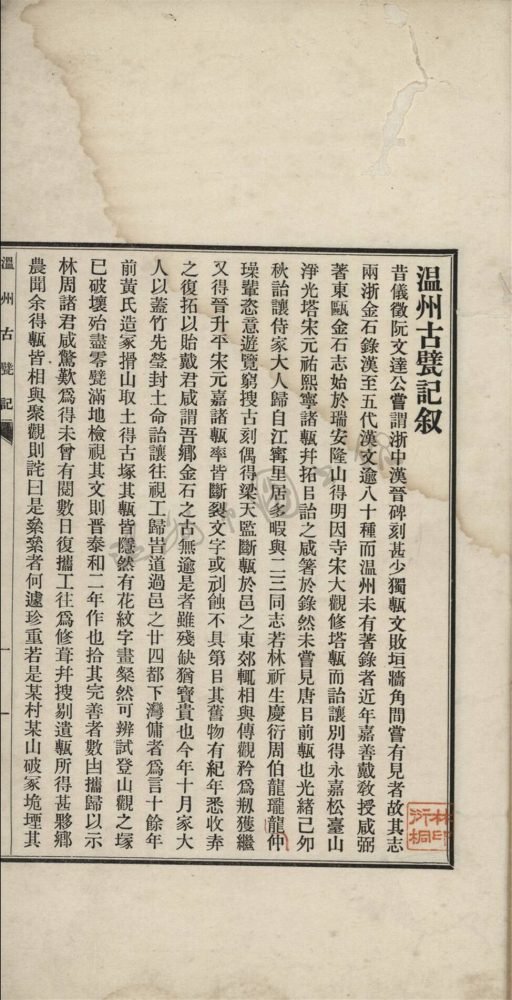 温州古甓記叙
昔儀徵阮文達公嘗謂浙中漢晉碑刻甚少獨甎文敗垣牆角間嘗有見者故其志
兩浙金石錄漢至五代漢文逾八十種而温州未有著錄者近年嘉善戴敎授咸弼
著東甌金石志始於瑞安隆山得明因寺宋大觀修塔甎而詒讓別得永嘉松臺山
淨光塔宋元祐熙寧諸甎幷拓㠯詒之咸箸於錄然未嘗見唐㠯前甎也光緒己卯
秋詒讓侍家大人歸自江甯里居多暇與二三同志若林祈生慶衍周伯龍瓏龍仲
璪輩恣意遊覽窮搜古刻偶得梁天監斷甎於邑之東郊輒相與傳觀矜爲剏獲繼
又得晉升平宋元嘉諸甎率皆斷裂文字或刓蝕不具第㠯其舊物有紀年悉收弆
之復拓以貽戴君咸謂吾鄕金石之古無逾是者雖殘缺猶寶貴也今年十月家大
人以蓋竹先瑩封土命詒讓往視工歸峕道過邑之廿四都下灣傭者爲言十餘年
前黃氏造冢搰山取土得古塚其甎皆隱然有花紋字畫粲然可辨試登山觀之塚
已破壞殆盡零甓滿地檢視其文則晋泰和二年作也拾其完善者數凷攜歸以示
林周諸君咸驚歎爲得未曾有閱數日復攜工往爲修葺幷搜剔遺甎所得甚夥鄕
農聞余得甎皆相與聚觀則詫曰是纍纍者何遽珍重若是某村某山破冢垝堙其
溫州古甓記
一
林印
衍桐